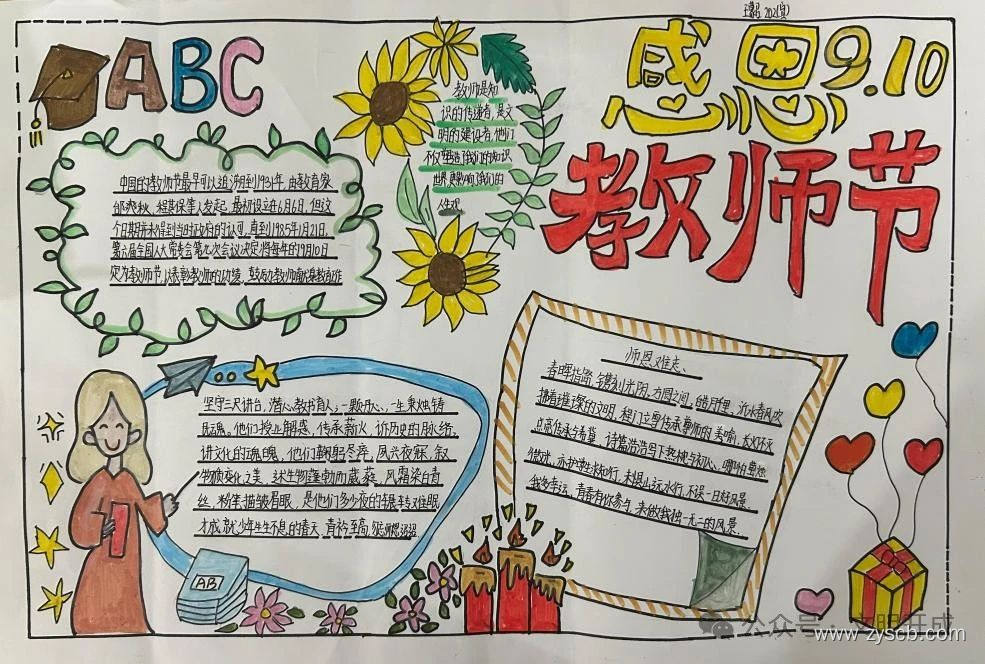 ABC
感恩9.10
教师节
教师是知
识的传递者,是文
明的建设者,他们
不仅塑造了我们的知识
世界,更影响了我们的
人生观
中国的教师节最早可以追溯到1931年,由教育家
邰爽秋、程其保等人发起,最初设立在6月6日,但这
个日期并未得到当时政府的认可,直到1985年1月21日,
第六届全国人大常委会第九次会议决定将每年的9月10日
定为教师节,以表彰教师的功绩,鼓励教师
师恩难忘
坚守三尺讲台,潜心教书育人,一颗丹心,一生秉烛铸
民魂。他们授业解惑,传承薪火,诉历史的脉络,
讲文化的魂魄,他们鞠躬尽瘁,夙兴夜寐,叙
物质变化之美,述生物蓬勃而葳蕤,风霜染白青
丝,粉笔描皱眉眼,是他们多少夜的辗转难眠
才成就少年生生不息的春天,青衿至高
春晖指路,镌刻光阴,方圆之间,皓月伴星,沂水春风吹
拂着璀璨的文明,程门立雪传承尊师的美喻,
点亮传承与希望,诗篇浩浩写下热忱与初心,哪怕
微光,亦护学生求知行,未损山远水行,不误一日好风景,
我多幸运,青春有你参与,来做我独一无二的风景。
AB
公众号
www.zyscb.com